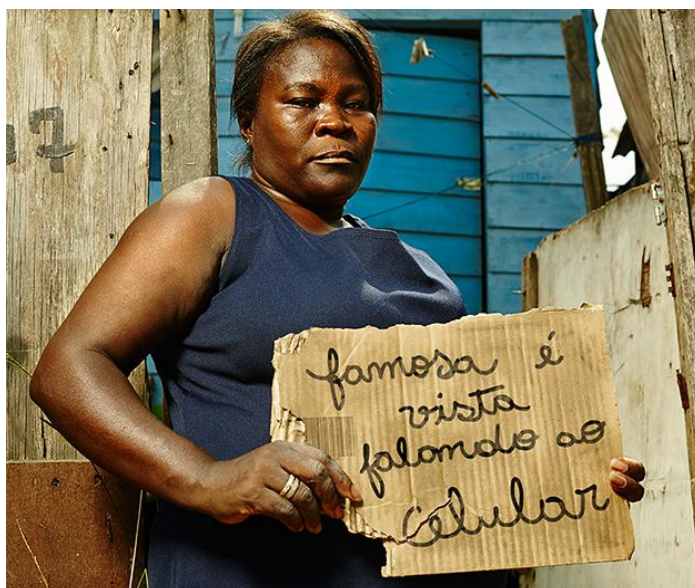 famosa é
vista
falando ao
celular